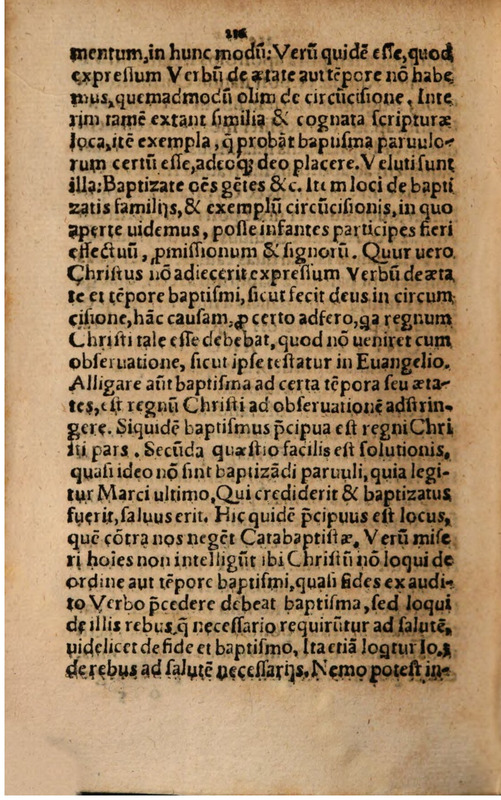 216
mentum, in hunc modū: Verū quidē esse, quod
expressum Verbū de ætate aut tēpore nō habe
mus, quemadmodū olim de circūcisione. Inte
rim tamē extant similia & cognata scripturæ
loca, itē exempla, q̄ probāt baptisma paruulo-
rum certū esse, adeoq; deo placere. Veluti sunt
illa: Baptizate oēs gētes &c. Item loci de bapti
zatis familijs, & exemplū circūcisionis, in quo
aperte uidemus, posse infantes participes fieri
effectuū, ꝓmissionum & signorū. Quur uero
Christus nō adiecerit expressum Verbū de æta
te et tēpore baptismi, sicut fecit deus in circum
cisione, hāc causam, ꝓ certo adfero, qa regnum
Christi tale esse debebat, quod nō ueniret cum
obseruatione, sicut ipse testatur in Euangelio.
Alligare aūt baptisma ad certa tēpora seu æta-
tes, est regnū Christi ad obseruationē adstrin-
gere. Siquidē baptismus p̄cipua est regni Chri
sti pars. Secūda quæstio facilis est solutionis,
quasi ideo nō sint baptizādi paruuli, quia legi-
tur Marci ultimo, Qui crediderit & baptizatus
fuerit, saluus erit. Hic quidē p̄cipuus est locus,
quē cōtra nos negēt Catabaptistæ. Verū mise
ri hoīes non intelligūt ibi Christū nō loqui de
ordine aut tēpore baptismi, quasi fides ex audi-
to Verbo p̄cedere debeat baptisma, sed loqui
de illis rebus, q̄ necessario requirūtur ad salutē,
uidelicet de fide et baptismo. Ita etiā loqtur Io. 3
de rebus ad salutē necessarijs. Nemo potest in-